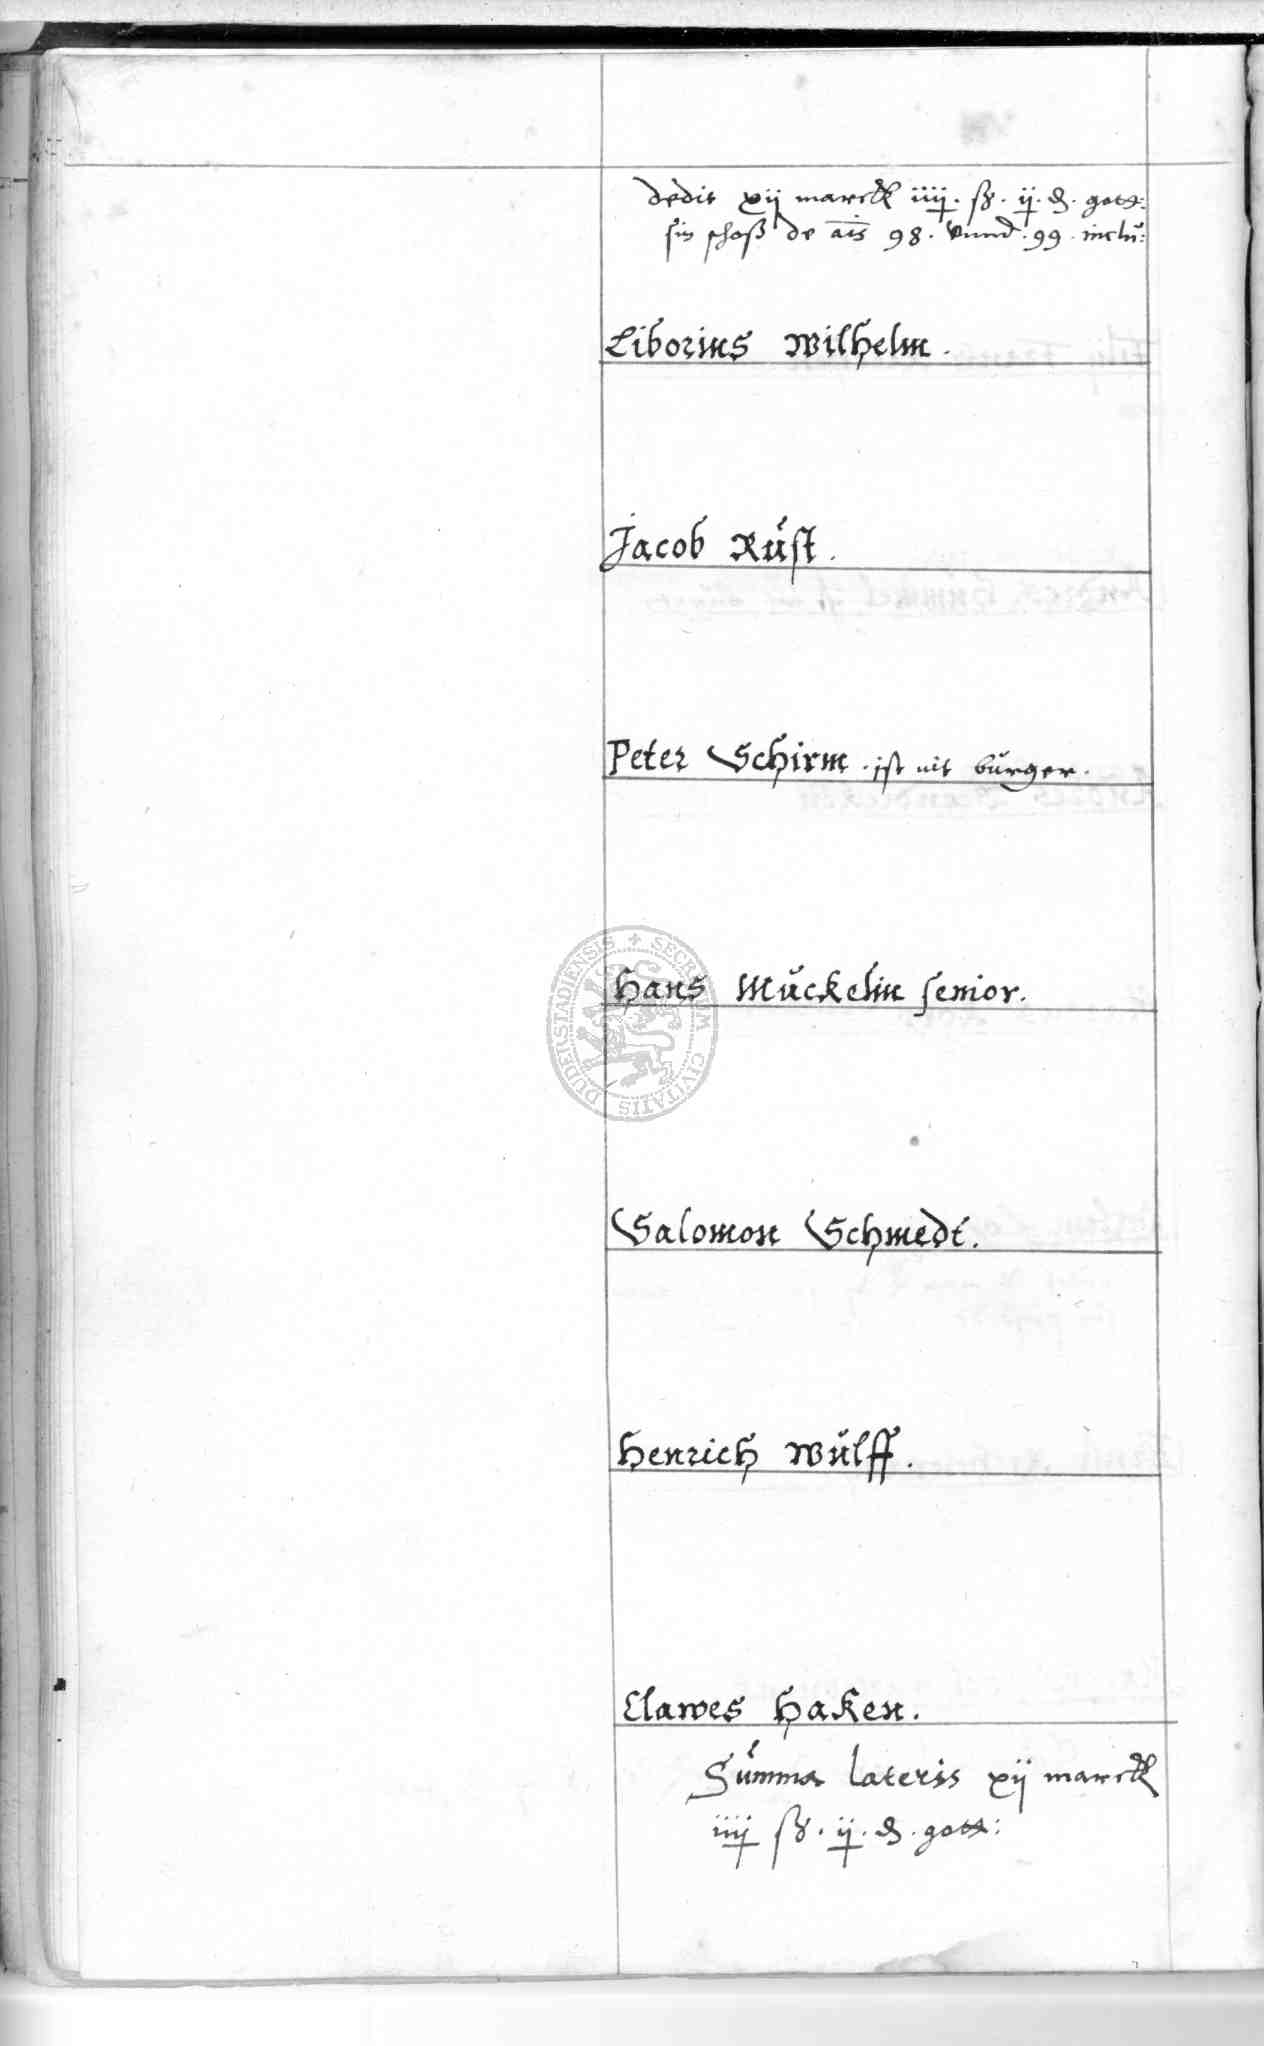 dedit xij marck iiij. ß. ij. ₰. gott:
sin schoß de ais 98. vnnd. 99. inclu:
Liborius Wilhelm.
Jacob Rust.
Peter Schirm. ist nit burger.
Hans Muckelm senior.
SECRETUM CIVITATIS DUDERSTADIENSIS
Salomon Schmedt.
Henrich Wulff.
Clawes Haken.
Summa lateris xij marck
iiij ß. ij. ₰. gott: